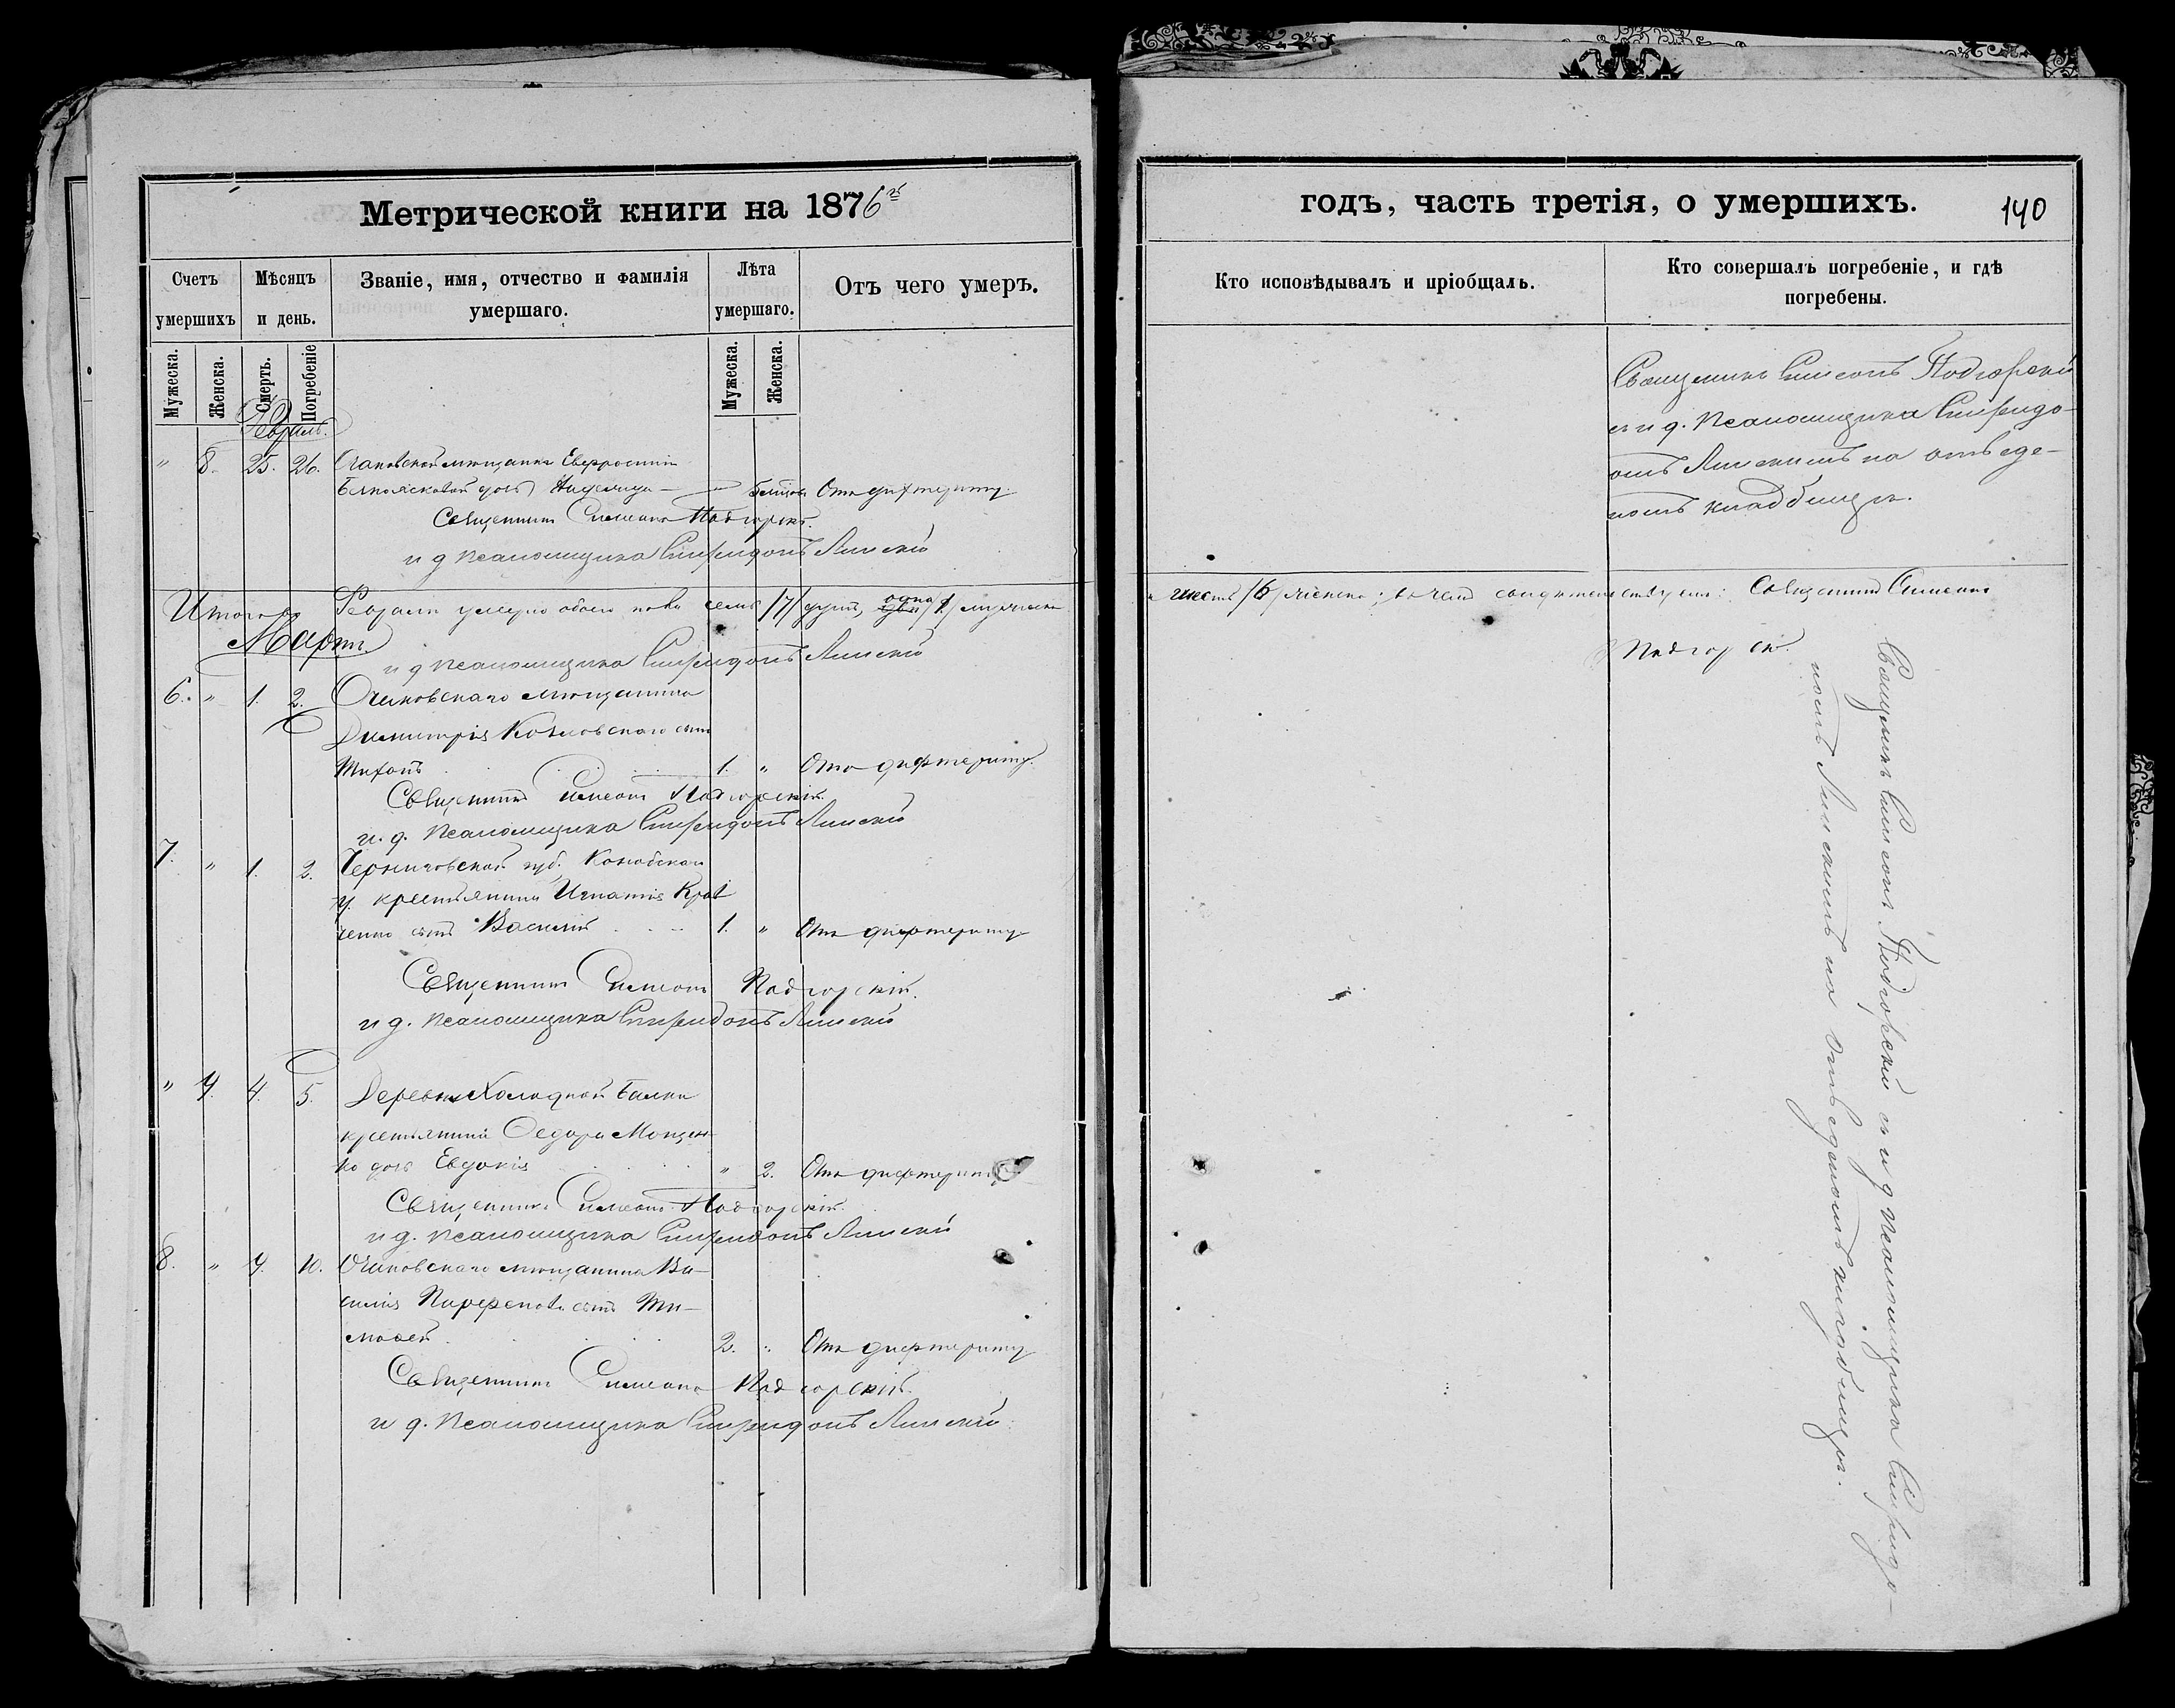 Метрической книги на 1876й
Счетъ умершихъ
Мѣсяцъ и день.
Званіе, имя, отчество и фамилія умершаго.
Лѣта умершаго.
Отъ чего умеръ.
Мужеска.
Женска.
Смерть.
Погребеніе
Мужеска.
Женска.
Февраль.
" 8. 25. 26. Очаковской мѣщанки Евфросиніи
дочь Надежда — Отъ дифтериту.
Священникъ Симеонъ Подгорскій.
и д псаломщика Спиридонъ Линскій
Итого въ Февралѣ умерло обоего пола семь /7/ душъ, одна /1/ мужеска
Мартъ.
и д псаломщика Спиридонъ Линскій
6. " 1. 2. Очаковскаго мѣщанина
Димитрія Козловскаго сынъ
Тихонъ 1. " Отъ дифтериту.
Священникъ Симеонъ Подгорскій.
и. д. псаломщика Спиридонъ Линскій
7. " 1. 2. Черниговской губ.
у. крестьянина Игнатія Крав
ченко сынъ Василій 1. " Отъ дифтериту
Священникъ Симеонъ Подгорскій.
и д. псаломщика Спиридонъ Линскій
" 9. 4. 5. Деревни Холодной Балки
крестьянина Ѳедора
ко дочь Евдокія " 2. Отъ дифтериту
Священникъ Симеонъ Подгорскій.
и д. псаломщика Спиридонъ Линскій
8. " 9. 10. Очаковскаго мѣщанина Ва-
силія Парфенова сынъ Ти-
моѳей 2. " Отъ дифтериту
Священникъ Симеонъ Подгорскій.
и д. псаломщика Спиридонъ Линскій
годъ, часть третія, о умершихъ.
140
Кто исповѣдывалъ и пріобщалъ.
Кто совершалъ погребеніе, и гдѣ погребены.
Священникъ Симеонъ Подгорскій
съ и д. псаломщика Спиридо-
номъ Линскимъ на отведе-
номъ кладбищѣ.
и шесть /6/ женска; въ чемъ свидѣтельствуемъ: Священникъ Симеонъ
Подгорскій.
Священникъ Симеонъ Подгорскій съ и д псаломщика Спиридо-
номъ Линскимъ на отведеномъ кладбищѣ.